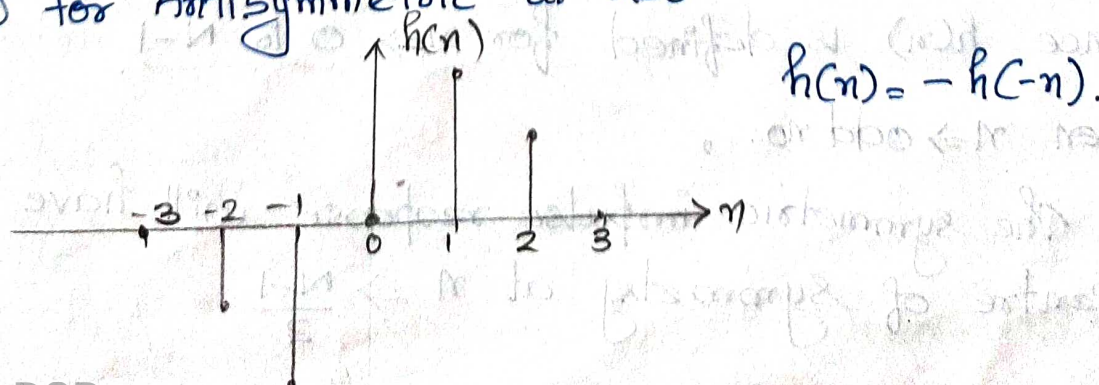 for Antisymmetric
h(n)
h(n) = - h(-n).
-3 -2 -1
n
0 1 2 3